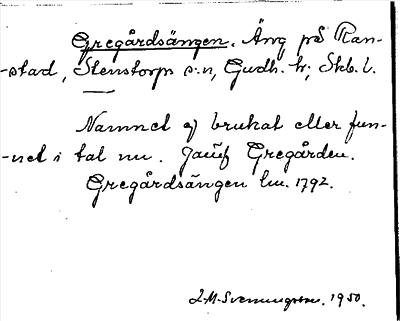 Gregårdsängen. Äng på Ran-
-stad, Stenstorps s:n, Gudh. hr; Skb. l.
Namnet ej brukat eller fun-
-net i tal nu. Jämf Gregården.
Gregårdsängen lm. 1792.
I.M. Svenungsson. 1950.